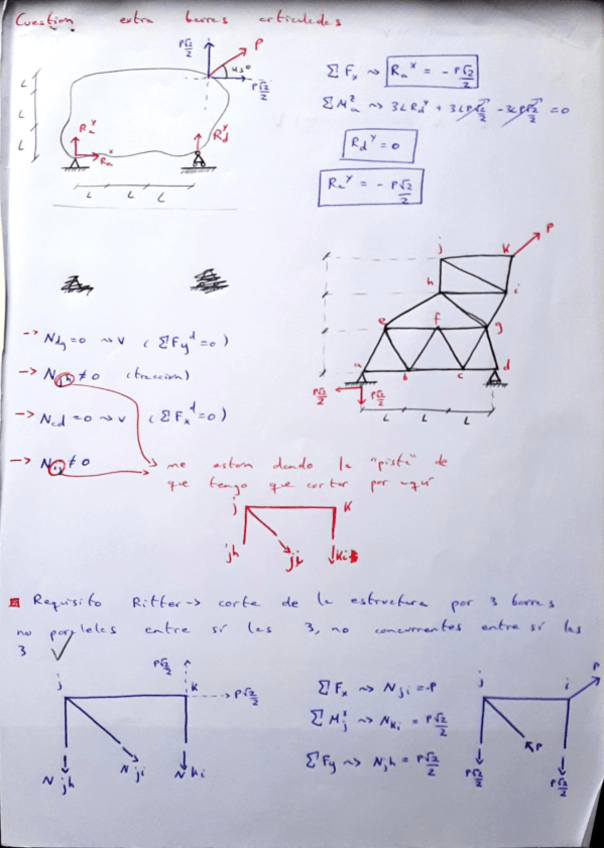 Cuestion extra barres articuledes
P√2/2
P
45°
P√2/2
L
L
L
Ra^y
Ra^x
Rd^y
L L L
ΣFx ⇝ Ra^x = - P√2/2
ΣMa^z ⇝ 3L Rd^y + 3L P√2/2 - 3L P√2/2 = 0
Rd^y = 0
Ra^y = - P√2/2
→ Ndg = 0 ⇝ v (ΣFy^d = 0)
→ Njh ≠ 0 (traccion)
→ Ncd = 0 ⇝ v (ΣFx^d = 0)
→ N ≠ 0
j k P
h i
e f g
a b c d
P√2/2
P√2/2
L L L
me estan dando la "pista" de
que tengo que cortar por aquí
j k
jh ji ki
Requisito Ritter → corte de la estructura por 3 barres
no parleles entre sí las 3, no concurrentes entre sí las
3
P√2/2
j k P√2/2
N jh N ji N ki
ΣFx ⇝ Nji = -P
ΣMj^z ⇝ Nki = P√2/2
ΣFy ⇝ Njh = P√2/2
j i P
P
P√2/2
P√2/2